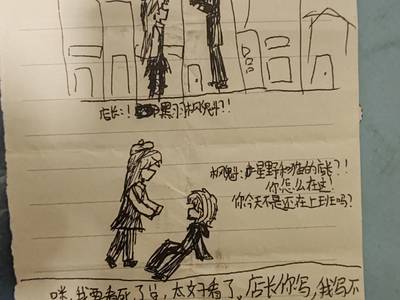 店长:! 黑羽枫魁?!
枫魁: 星野和猫的店长?!
你怎么在这!
你今天不是还在上班吗?
我要 死了 太好看了。店长你写,我写不